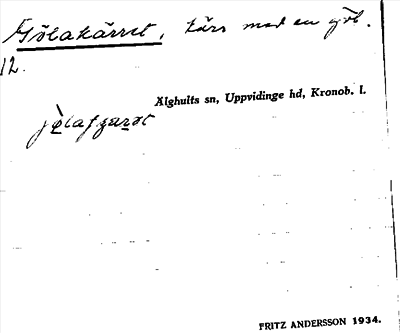 Gölakärret, kärr med en göl.
12.
Älghults sn, Uppvidinge hd, Kronob. l.
FRITZ ANDERSSON 1934.